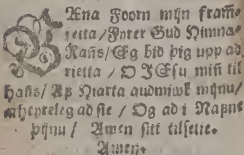 BÆna Foorn mijn fram̃e
setta / Fyrer Gud Himna-
Rañs / Eg bid þig upp ad
rietta / O JEsu miñ til
hañs / Aþ Hiarta audmiwk mijnu /
vnheyreleg ad sie / Og ad i Naþne
þijnu / Amen sitt tilsette.
Amen.